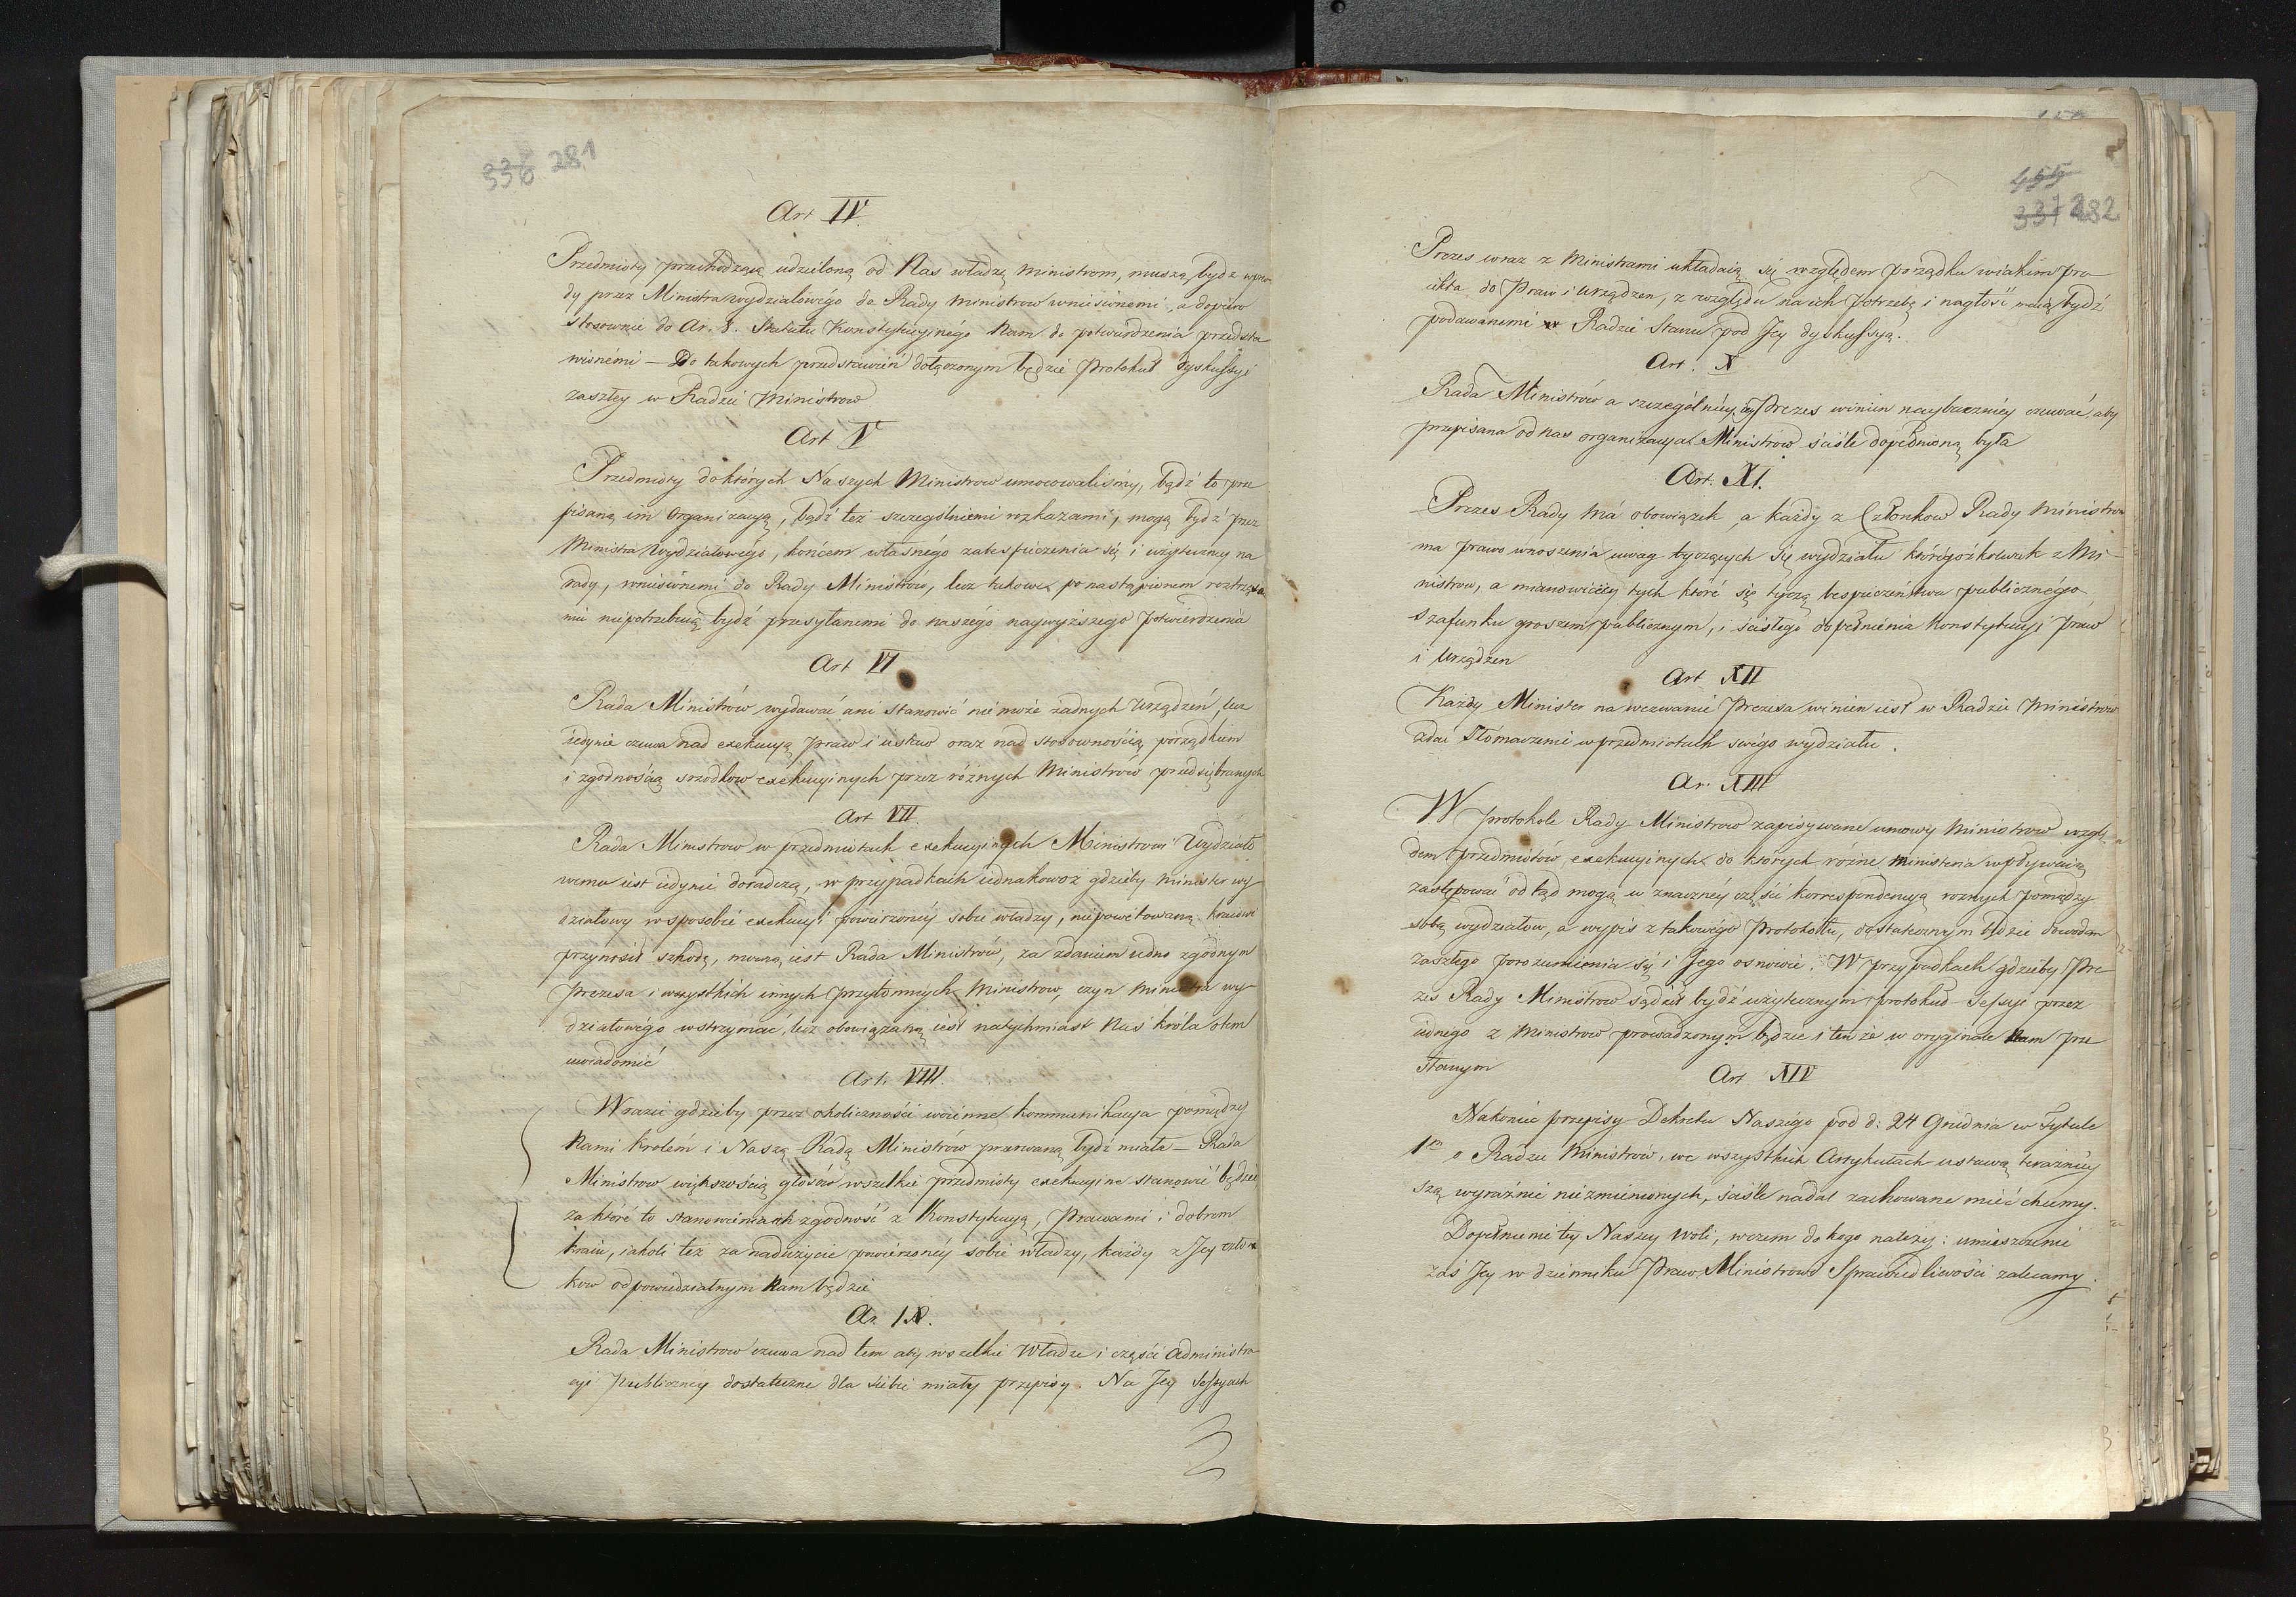 336 281
Art IV.
Przedmioty przechodzące udzieloną od Nas władzę Ministrom, muszą bydz wprzo
dy przez Ministra wydziałowego do Rady Ministrow wniesionemi, a dopiero
stosownie do Ar. 8. Statutu Konstytucyjnego Nam do potwierdzenia przedsta
wionémi — Do takowych przedstawień dołączonym będzie Protokuł dyskussyi
zaszłey w Radzie Ministrow
Art V
Przedmioty do których Naszych Ministrow umocowaliśmy, bądź to prze
pisaną im Organizacyą, bądź też szczególniemi rozkazami, mogą bydź przez
Ministra Wydziałowégo, końcem własnégo zabespieczenia się i użyteczney na
rady, wniesionemi do Rady Ministrów, lecz takowe po nastąpionem roztrząsa
niu niepotrzebuią bydź przesyłanemi do naszégo naywyższego potwierdzenia
Art VI
Rada Ministrów wydawać ani stanowić nie może żadnych Urządzeń, lecz
iedynie czuwa nad exekucyą praw i ustaw oraz nad stosownością porządkiem
i zgodnością srzodkow exekucyinych przez różnych Ministrów przedsiębranych
Art VII.
Rada Ministrow w przedmiotach exekucyinych Ministrowi Wydziało
wemu iest iedynie doradczą, w przypadkach iednakowoż gdzieby Minister wy
działowy w sposobie exekucyi powierzonéy sobie władzy, niepowetowaną kraiowi
przynosił szkodę, mocną iest Rada Ministrów, za zdaniem iedno zgodnym
Prezesa i wszystkich innych przytomnych Ministrow, czyn Ministra wy-
działowégo wstrzymać, lecz obowiązaną iest natychmiast Nas Króla otem
uwiadomić
Art. VIII.
W razie gdzieby przez okoliczności woienne kommunikacya pomiędzy
Nami Krolém i Naszą Radą Ministrów przerwaną bydź miała — Rada
Ministrow większością głosów wszelkie przedmioty exekucyine stanowić będzie,
za któré to stanowienia ich zgodność z Konstytucyą, Prawami i dobrem
kraiu, iakoli też za nadużycie powierzonéy sobie władzy, każdy z Jey człon
kow odpowiedzialnym Nam będzie
Ar. IX.
Rada Ministrow czuwa nad tem aby wszelkie Władze i części Administra
cyi publiczney dostateczne dla siebie miały przepisy. Na Jey Sessyach
455
337 282
Prezes wraz z Ministrami układaią się względem porządku w iakim pro
iekta do Praw i urządzen, z względu na ich potrzebę i nagłość maią bydź
podawanemi Radzie Stanu pod Jey dyskussyą.
Art. X
Rada Ministrów a szczególniéy iey Prezes winien naybaczniéy czuwać, aby
przepisana od nas organizacya Ministrow ściśle dopełnioną była
Art. XI.
Prezes Rady má obowiązek, a każdy z Członkow Rady Ministrow
ma prawo wnoszenia uwag tyczących się wydziału któregożkolwiek z Mi-
nistrow, a mianowicie tych któré się tyczą bespieczeństwa publicznégo
Szafunku groszem publicznym, i ścisłego dopełnienia Konstytucyi Praw
i Urządzen
Art XII
Każdy Minister na wezwanie Prezesa winien iest w Radzie Ministrow
zdać Tłómaczenie w przedmiotach swégo wydziału.
Ar. XIII
W protokole Rady Ministrow zapisywane umowy Ministrow wzglę
dem przedmiotów exekucyinych do których różne Ministeria wpływaią
zastępować odtąd mogą w znaczney części korrespondencyą roznych pomiędzy
sobą wydziałow, a wypis z takowégo Protokółu, dostatecznym będzie dowodem
zaszłego porozumienia się i Jego osnowie. W przypadkach gdzieby Pre-
zes Rady Ministrow sądził bydź użytecznym protokuł Sessyi przez
iednego z Ministrow prowadzonym będzie i tenże w oryginale Nam prze
słanym
Art XIV
Nakoniec przepisy Dekretu Naszégo pod d: 24 Grudnia w Tytule
1m o Radzie Ministrów, we wszystkich Artykułach ustawą teraźniey
szą wyraźnie niezmienionych, ściśle nadal zachowane mieć chcemy.
Dopełnienie tey Naszey Woli, wczem do kogo należy; umieszczenie
zaś Jey w dzienniku Praw, Ministrowi Sprawiedliwości zalecamy.